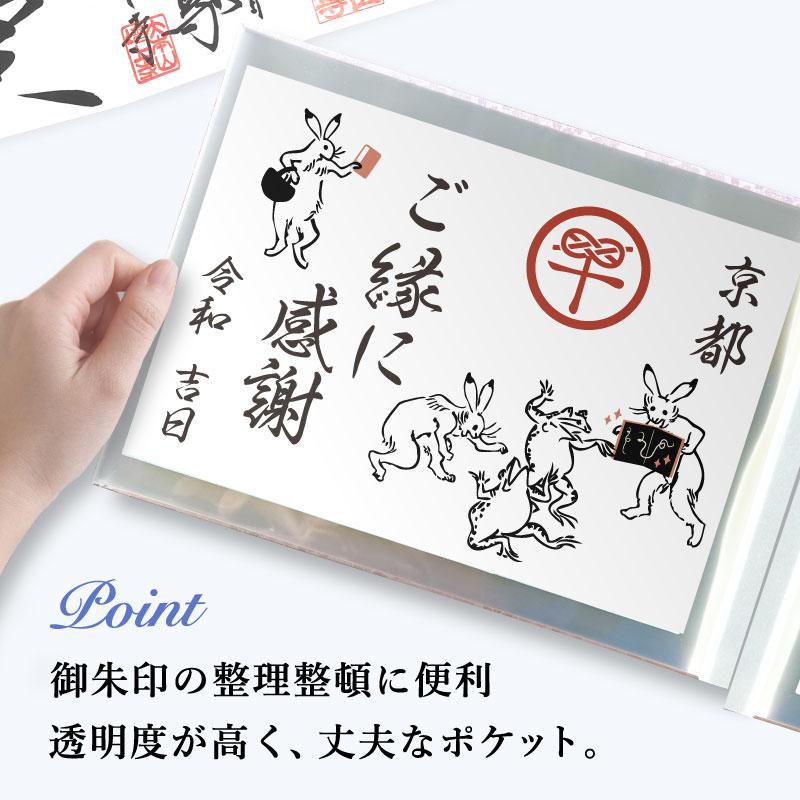 京都
ご縁に
感謝
令和 吉日
Point
御朱印の整理整頓に便利
透明度が高く、丈夫なポケット。